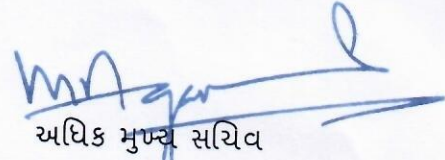 અધિક મુખ્ય સચિવ